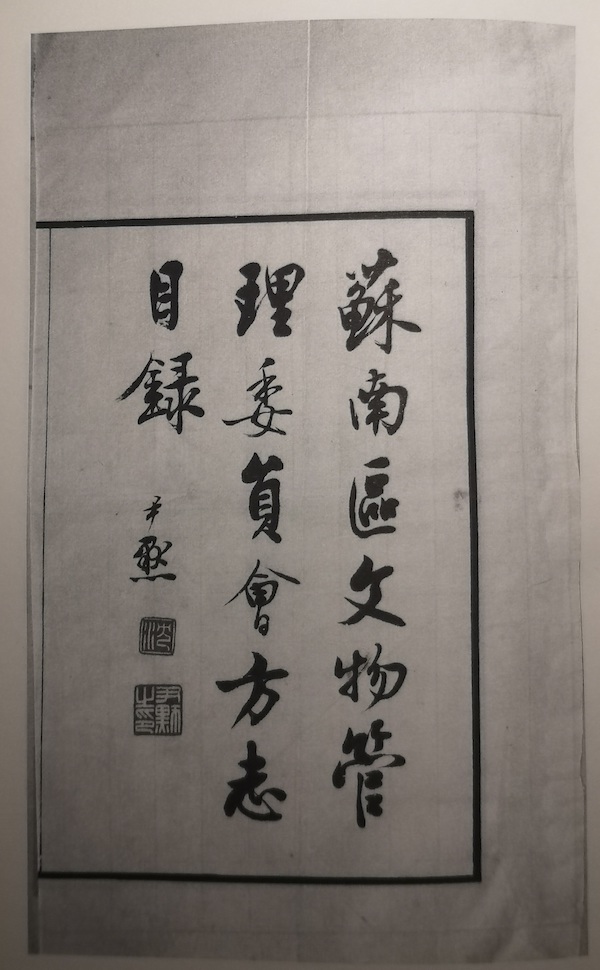 蘇南區文物管
理委員會方志
目録
尹默
沈
尹默之印